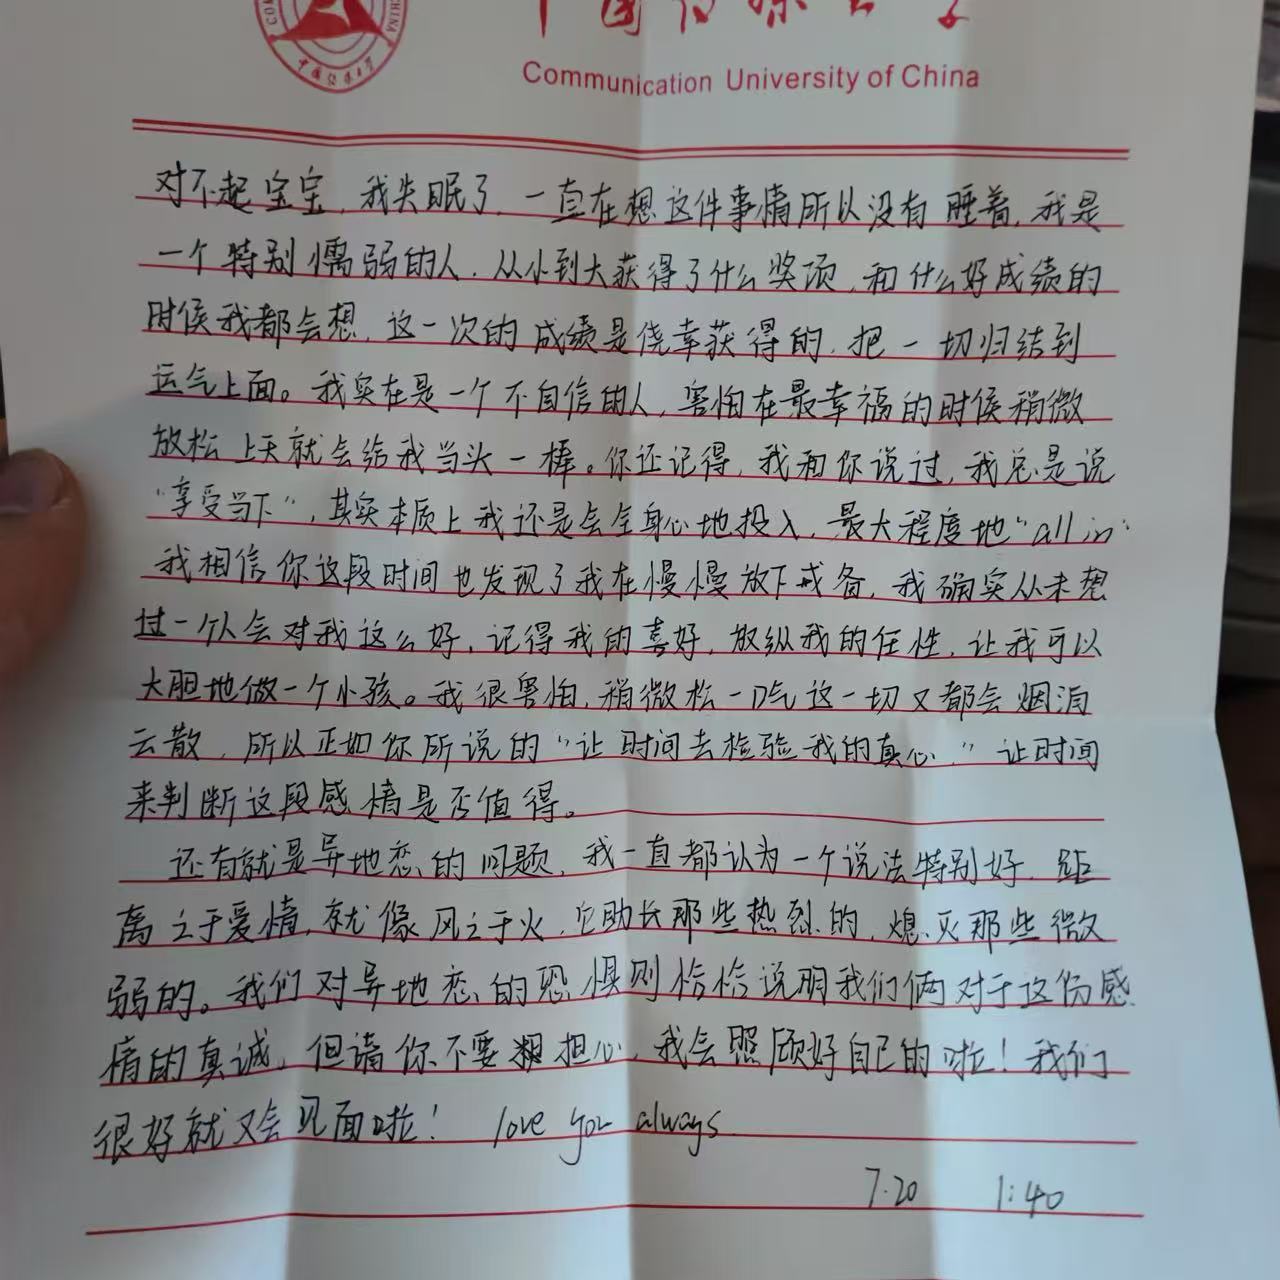 中国传媒大学
Communication University of China
对不起宝宝,我失眠了,一直在想这件事情所以没有睡着,我是
一个特别懦弱的人,从小到大获得了什么奖项,和什么好成绩的
时候我都会想,这一次的成绩是侥幸获得的,把一切归结到
运气上面。我实在是一个不自信的人,害怕在最幸福的时候稍微
放松上天就会给我当头一棒。你还记得,我和你说过,我总是说
“享受当下”,其实本质上我还是会全身心地投入,最大程度地“all in”
我相信你这段时间也发现了我在慢慢放下戒备,我确实从未想
过一个人会对我这么好,记得我的喜好,放纵我的任性,让我可以
大胆地做一个小孩。我很害怕,稍微松一口气这一切又都会烟消
云散,所以正如你所说的“让时间去检验我的真心”让时间
来判断这段感情是否值得。
还有就是异地恋的问题,我一直都认为一个说法特别好,距
离之于爱情,就像风之于火,它助长那些热烈的,熄灭那些微
弱的。我们对异地恋的恐惧则恰恰说明我们俩对于这份感
情的真诚,但请你不要担心,我会照顾好自己的啦!我们
很好就又会见面啦! love you always
7.20 1:40